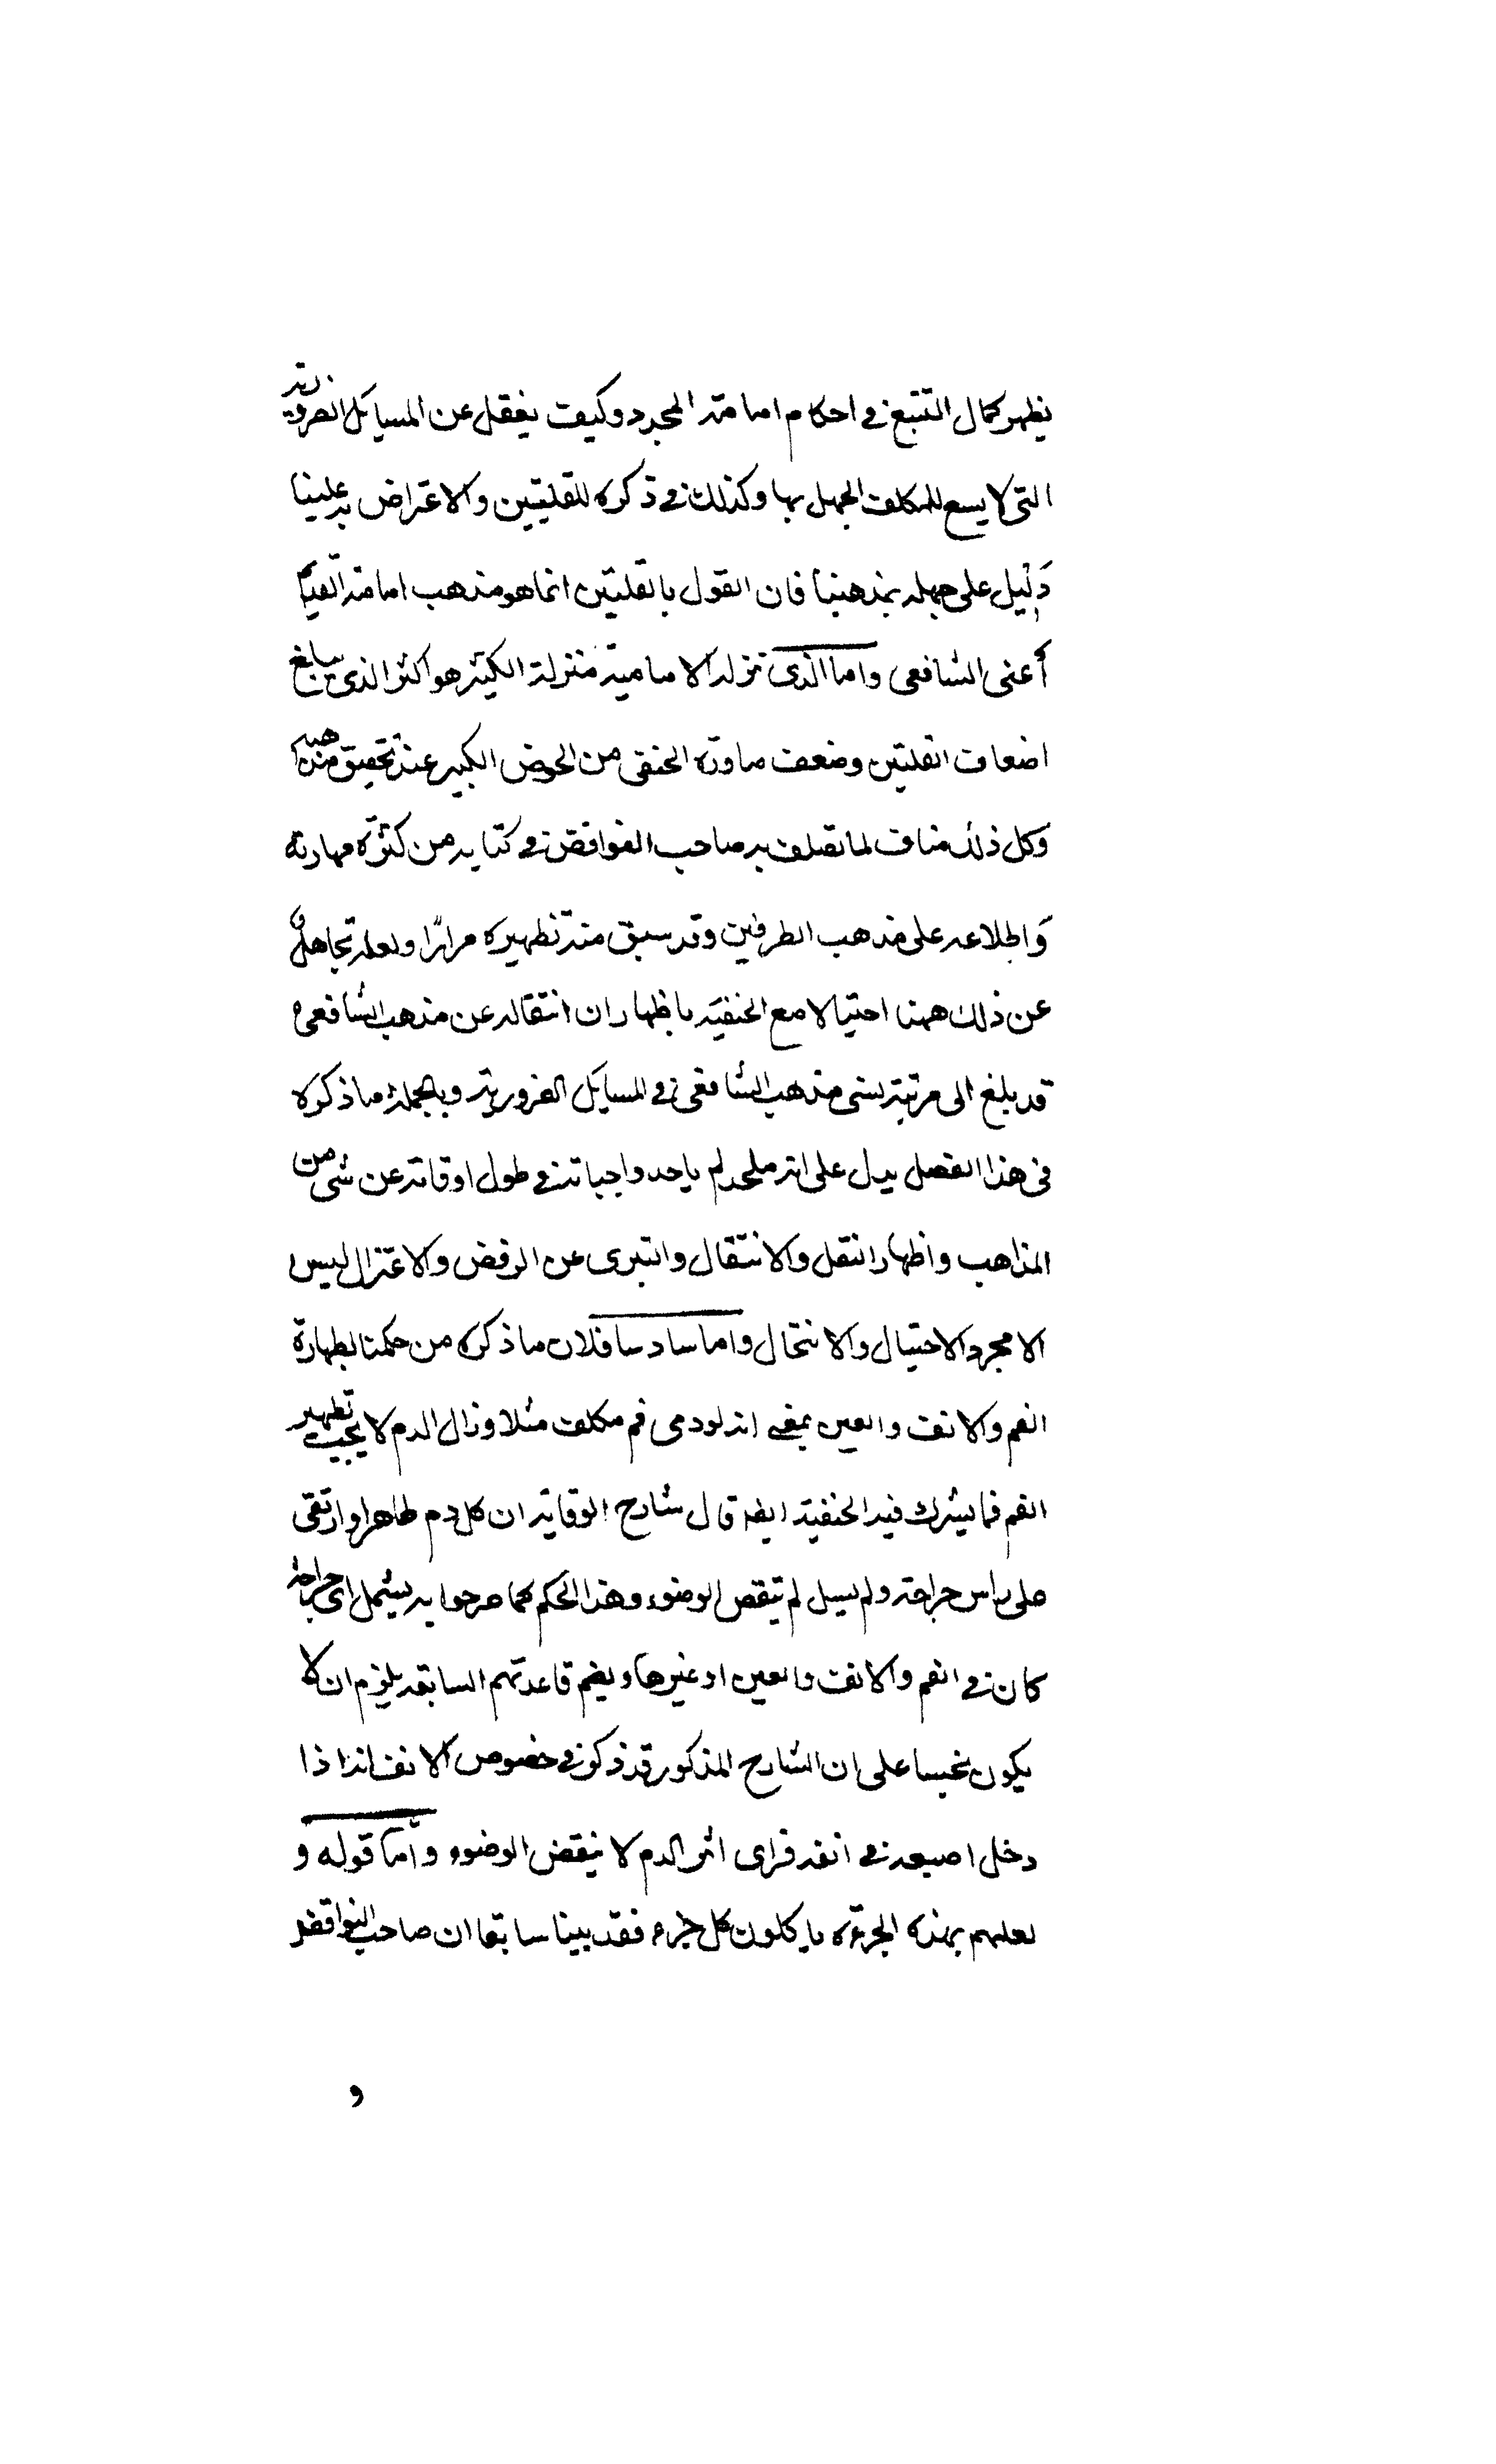 يظهر كمال التتبع في احكام امامة المجرد وكيف يغفل عن المسايل الضرورية
التي لا يسع للمكلف الجهل بها وكذلك في ذكره للقلتين والاعتراض به علينا
دليل على جهله بمذهبنا فان القول بالقلتين انما هو مذهب امامه القديم
أعنى الشافعى واما الذى نزله الامامية منزلة الكثير هو اكثر الذى يبلغ
اضعاف القلتين وضعف ما وراه الحنفى من الحوض الكبير عند تحقيق مذهبه
وكل ذلك مناف لما تصلف به صاحب النواقض في كتابه من كثرة مهارته
واطلاعه على مذهب الطرفين وقد سبق منه نظيره مرارًا ولعله تجاهل
عن ذلك ههنا احتيالا مع الحنفية باظهار ان انتقاله عن مذهب الشافعى
قد بلغ الى مرتبة نسى مذهب الشافعى في المسايل الضرورية وبالجملة ما ذكره
في هذا الفصل يدل على انه ملحد لم ياخذ واجباته في طول اوقاته عن شى من
المذاهب واظهار النقل والانتقال والتبرى عن الرفض والاعتزال ليس
الا مجرد الاحتيال والانتحال واما سادسا فلان ما ذكره من حكمنا بطهارة
الفم والانف والعين بمعنى انه لو دمى فم مكلف مثلا وزال الدم لا يجب تطهير
الفم فما يشرك فيه الحنفية ايضا قال شارح الوقاية ان كل دم ظاهر او ارتقى
على راس جراحة ولم يسل لم ينقض الوضوء وهذا الحكم كما صرحوا به يشمل اى جراحة
كان في الفم والانف والعين او غيرها وبضم قاعدتهم السابقة يلزم ان لا
يكون نجسا على ان الشارح المذكور قد ذكر في خصوص الانف انه اذا
دخل اصبعه في انفه فراى اثر الدم لا ينقض الوضوء وأما قوله و
لعلهم بهذه الجرءة ياكلون كل خرء فقد بينا سابقا ان صاحب النواقض
و